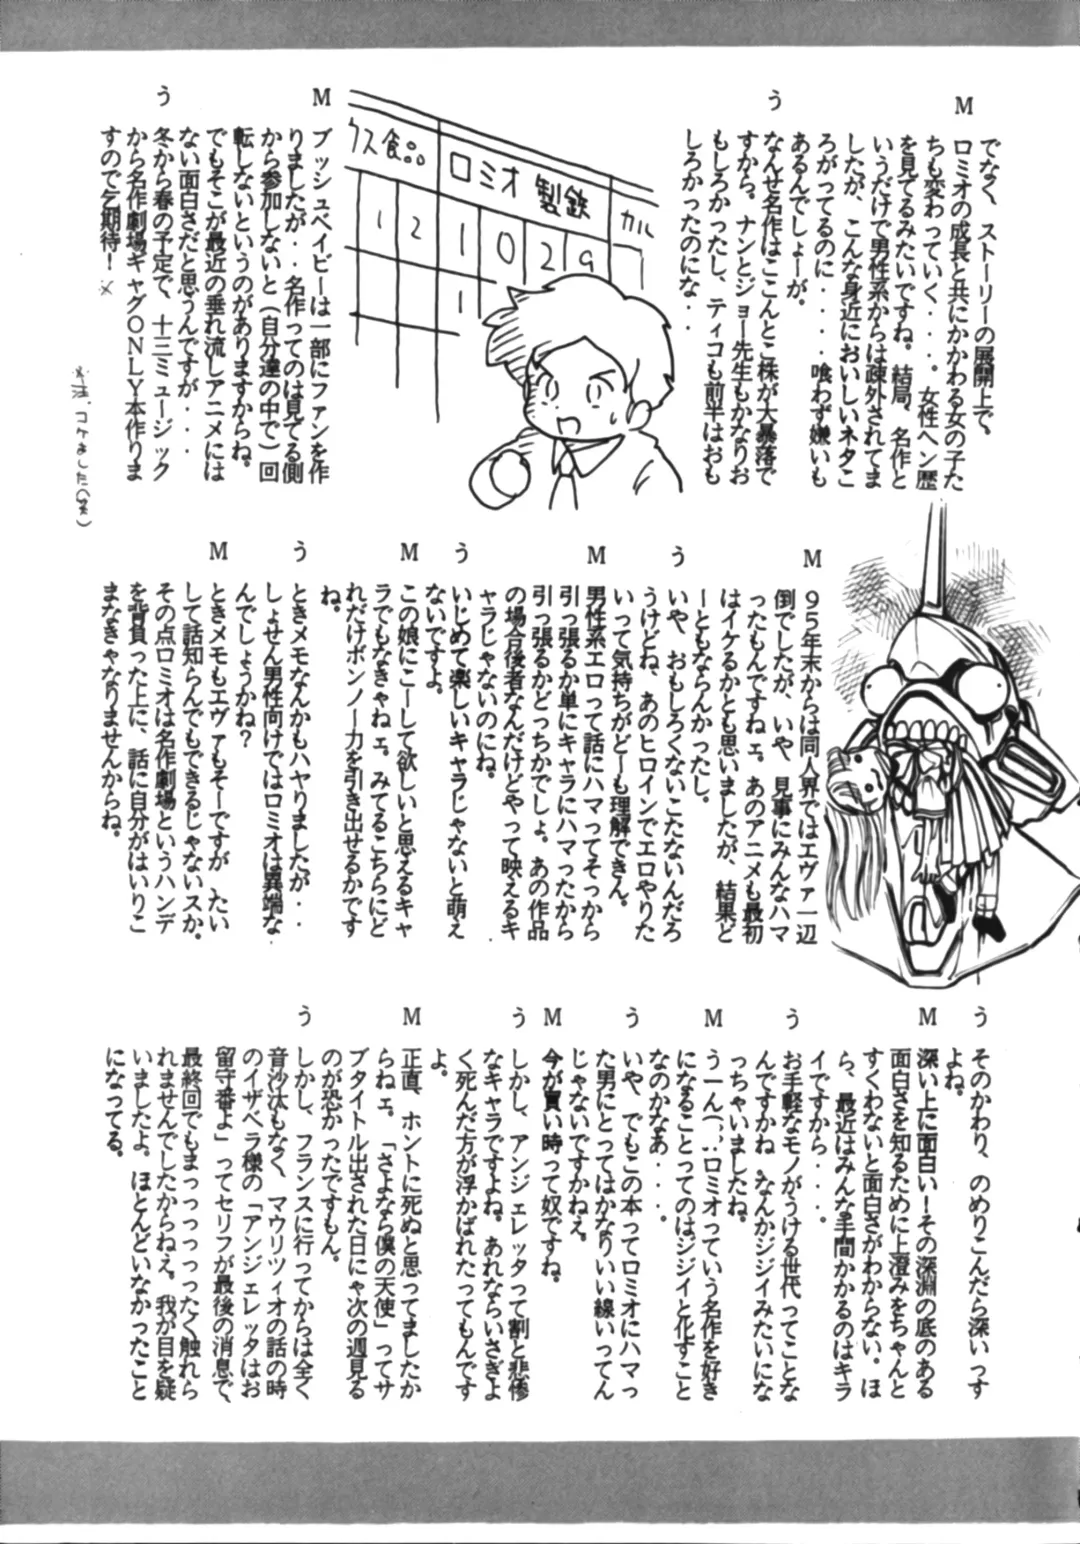 でなく、ストーリーの展開上で。
M
ロミオの成長と共にかかわる女の子た
ちも変わっていく・・・・。女性ヘン歴
を見てるみたいですね。結局、名作と
いうだけで男性系からは疎外されてま
したが、こんな身近においしいネタこ
ろがってるのに・・・・喰わず嫌いも
あるんでしょーが。
う
なんせ名作はここんとこ株が大暴落で
すから。ナンとジョー先生もかなりお
もしろかったし、ティコも前半はおも
しろかったのにな・・
クス食品
ロミオ製鉄
カル
12
1029
1
M
ブッシュベイビーは一部にファンを作
りましたが・・名作ってのは見てる側
から参加しないと（自分達の中で）回
転しないというのがありますからね。
でもそこが最近の垂れ流しアニメには
ない面白さだと思うんですが・・・
う
冬から春の予定で、十三ミュージック
から名作劇場ギャグONLY本作りま
すので乞期待！※
※注、コケました(笑)
M
95年末からは同人界ではエヴァ一辺
倒でしたが、いや、見事にみんなハマ
ったもんですねェ。あのアニメも最初
はイケるかとも思いましたが、結果ど
ーともならんかったし。
う
いや、おもしろくないこたないんだろ
うけどね、あのヒロインでエロやりた
いって気持ちがどーも理解できん。
M
男性系エロって話にハマってそっから
引っ張るか単にキャラにハマったから
引っ張るかどっちかでしょ。あの作品
の場合後者なんだけどやって映えるキ
ャラじゃないのにね。
う
いじめて楽しいキャラじゃないと萌え
ないですよ。
M
この娘にこーして欲しいと思えるキャ
ラでもなきゃねェ。みてるこちらにど
れだけボンノー力を引き出せるかです
ね。
う
ときメモなんかもハヤりましたが・・
しょせん男性向けではロミオは異端な
んでしょうかね？
M
ときメモもエヴァもそーですが、たい
して話知らんでもできるじゃないスか。
その点ロミオは名作劇場というハンデ
を背負った上に、話に自分がはいりこ
まなきゃなりませんからね。
う
そのかわり、のめりこんだら深いっす
よね。
M
深い上に面白い！その深淵の底のある
面白さを知るために上澄みをちゃんと
すくわないと面白さがわからない。ほ
ら、最近はみんな手間かかるのはキラ
イですから・・・・。
う
お手軽なモノがうける世代ってことな
んですかね。なんかジジイみたいにな
っちゃいましたね。
M
うーん(;;)ロミオっていう名作を好き
になることってのはジジイと化すこと
なのかなあ・・・。
う
いや、でもこの本ってロミオにハマっ
た男にとってはかなりいい線いってん
じゃないですかねえ。
M
今が買い時って奴ですね。
う
しかし、アンジェレッタって割と悲惨
なキャラですよね。あれならいさぎよ
く死んだ方が浮かばれたってもんです
よ。
M
正直、ホントに死ぬと思ってましたか
らねェ。「さよなら僕の天使」ってサ
ブタイトル出された日にゃ次の週見る
のが恐かったですもん。
う
しかし、フランスに行ってからは全く
音沙汰もなく、マウリツィオの話の時
のイザベラ様の「アンジェレッタはお
留守番よ」ってセリフが最後の消息で、
最終回でもまっっっっったく触れら
れませんでしたからねえ。我が目を疑
いましたよ。ほとんどいなかったこと
になってる。